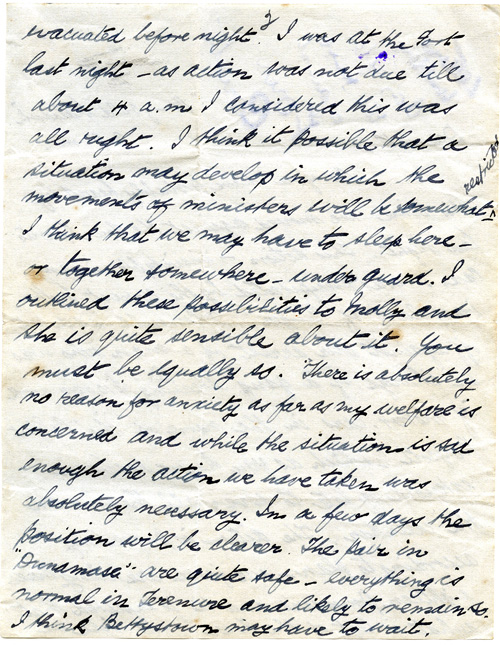 3
evacuated before night. I was at the Fort
last night – as action was not due till
about 4 a.m I considered this was
all right. I think it possible that a
situation may develop in which the
movements of ministers will be somewhat restricted
I think that we may have to sleep here –
or together somewhere – under guard. I
outlined these possibilities to Molly and
she is quite sensible about it. You
must be equally so. There is absolutely
no reason for anxiety as far as my welfare is
concerned and while the situation is sad
enough the action we have taken was
absolutely necessary. In a few days the
position will be clearer. The pair in
"Dunamase" are quite safe – everything is
normal in Terenure and likely to remain so.
I think Bettystown may have to wait.